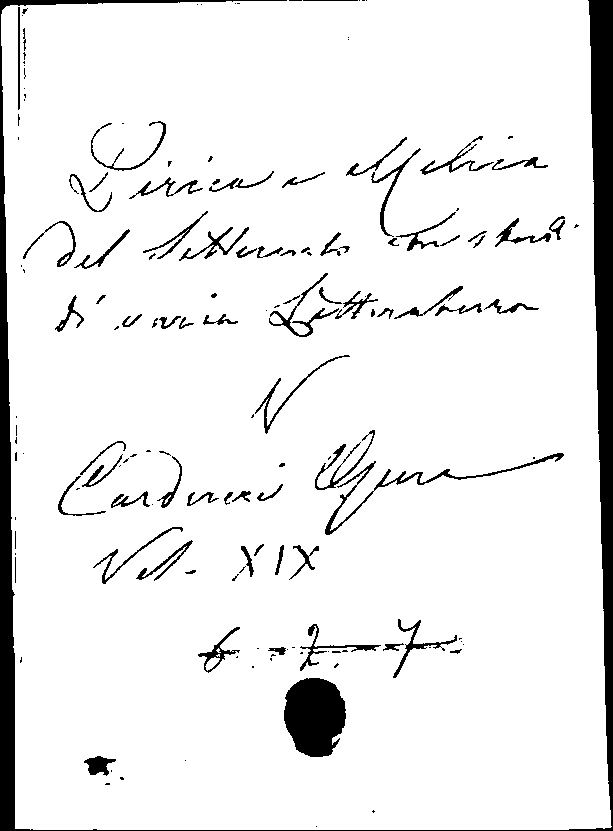 Lirica e Melica
del Settecento con studi
di varia Letteratura
V
Carducci Opere
Vol. XIX
6. 2. 7